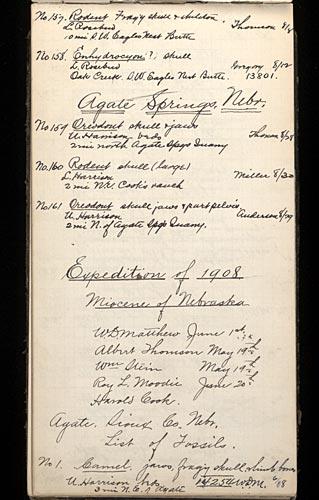 No. 157. Rodent Frag'y skull & skeleton.
L. Rosebud Thomson 8/9
10 mi S.W. Eagles Nest Butte
No 158. Enhydrocyon ?; skull
L. Rosebud Gregory 8/12
Oak Creek. S.W. Eagle Nest Butte. 13801.
Agate Springs, Nebr.
No 159 Oreodont skull & jaws
U. Harrison beds Thomson 8/28
2 mi north Agate Spgs Quarry
No. 160 Rodent skull (large)
L. Harrison Miller 8/30
2 mi N.E. Cook's ranch
No. 161 Oreodont skull jaws & part pelvis
U. Harrison Anderson 8/29
2 mi N. of Agate Spgs Quarry.
Expedition of 1908
Miocene of Nebraska
W D Matthew June 1st
Albert Thomson May 19th
Wm Stein May 19th
Roy L. Moodie June 20th
Harold Cook.
Agate. Sioux Co, Nebr.
List of Fossils.
No 1. Camel, jaws, frag'y skull, & limb bones
U. Harrison beds 14254 W.D.M. 6/8
3 mi N.E. of Agate